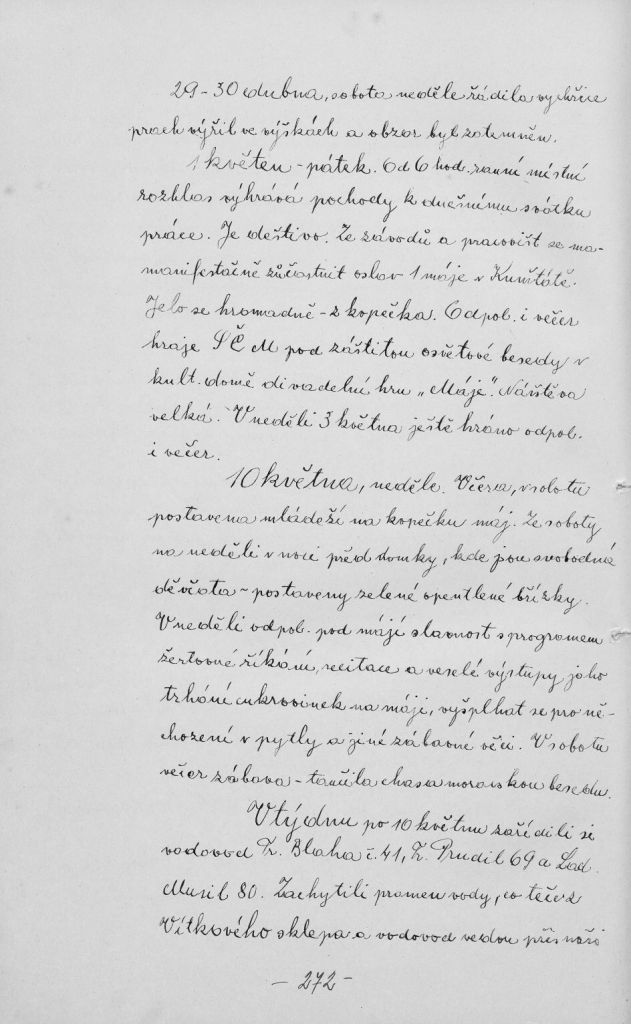 29-30 dubna, sobota neděle řádila vychřice
prach výřil ve výškách a obzor byl zatemněn.
1 květen - pátek. Od 6 hod. ranní místní
rozhlas vyhrává pochody k dnešnímu svátku
práce. Je deštivo. Ze závodů a pracovišt se ma-
manifestačně zůčastnit oslav 1 máje v Kunštátě.
Jelo se hromadně - z kopečka. Odpol. i večer
hraje SČM pod záštitou osvětové besedy v
kult. domě divadelní hru „Máje". Návštěva
velká. V neděli 3 května ještě hráno odpol.
i večer.
10 května, neděle. Včera, v sobotu
postavena mládeží na kopečku máj. Ze soboty
na neděli v noci před domky, kde jsou svobodná
děvčata - postaveny zelené opentlené břízky.
V neděli odpol. pod májí slavnost s programem
žertovné říkání, recitace a veselé výstupy jako
trhání cukrovinek na máji, vyšplhat se pro ně-
chození v pytly a jiné zábavné věci. V sobotu
večer zábava - tančila chasa moravskou besedu.
V týdnu po 10 květnu zařídili si
vodovod Fr. Blaha č. 41, Fr. Prudil 69 a Lad.
Musil 80. Zachytili pramen vody, co teče z
Vítkového sklepa a vodovod vedou přes
- 272 -